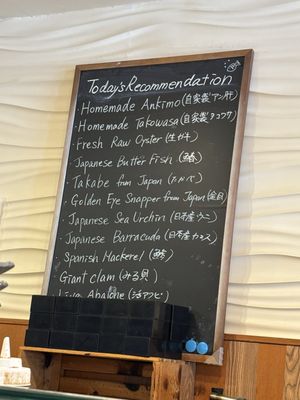 Today's Recommendation
・Homemade Ankimo (自家製アン肝)
・Homemade Takowasa (自家製タコワサ)
・Fresh Raw Oyster (生ガキ)
・Japanese Butter Fish
・Takabe from Japan (タカベ)
・Golden Eye Snapper from Japan (金目)
・Japanese Sea Urchin (日本産ウニ)
・Japanese Barracuda (日本産カマス)
・Spanish Mackerel
・Giant Clam (みる貝)
Live Abalone (活アワビ)